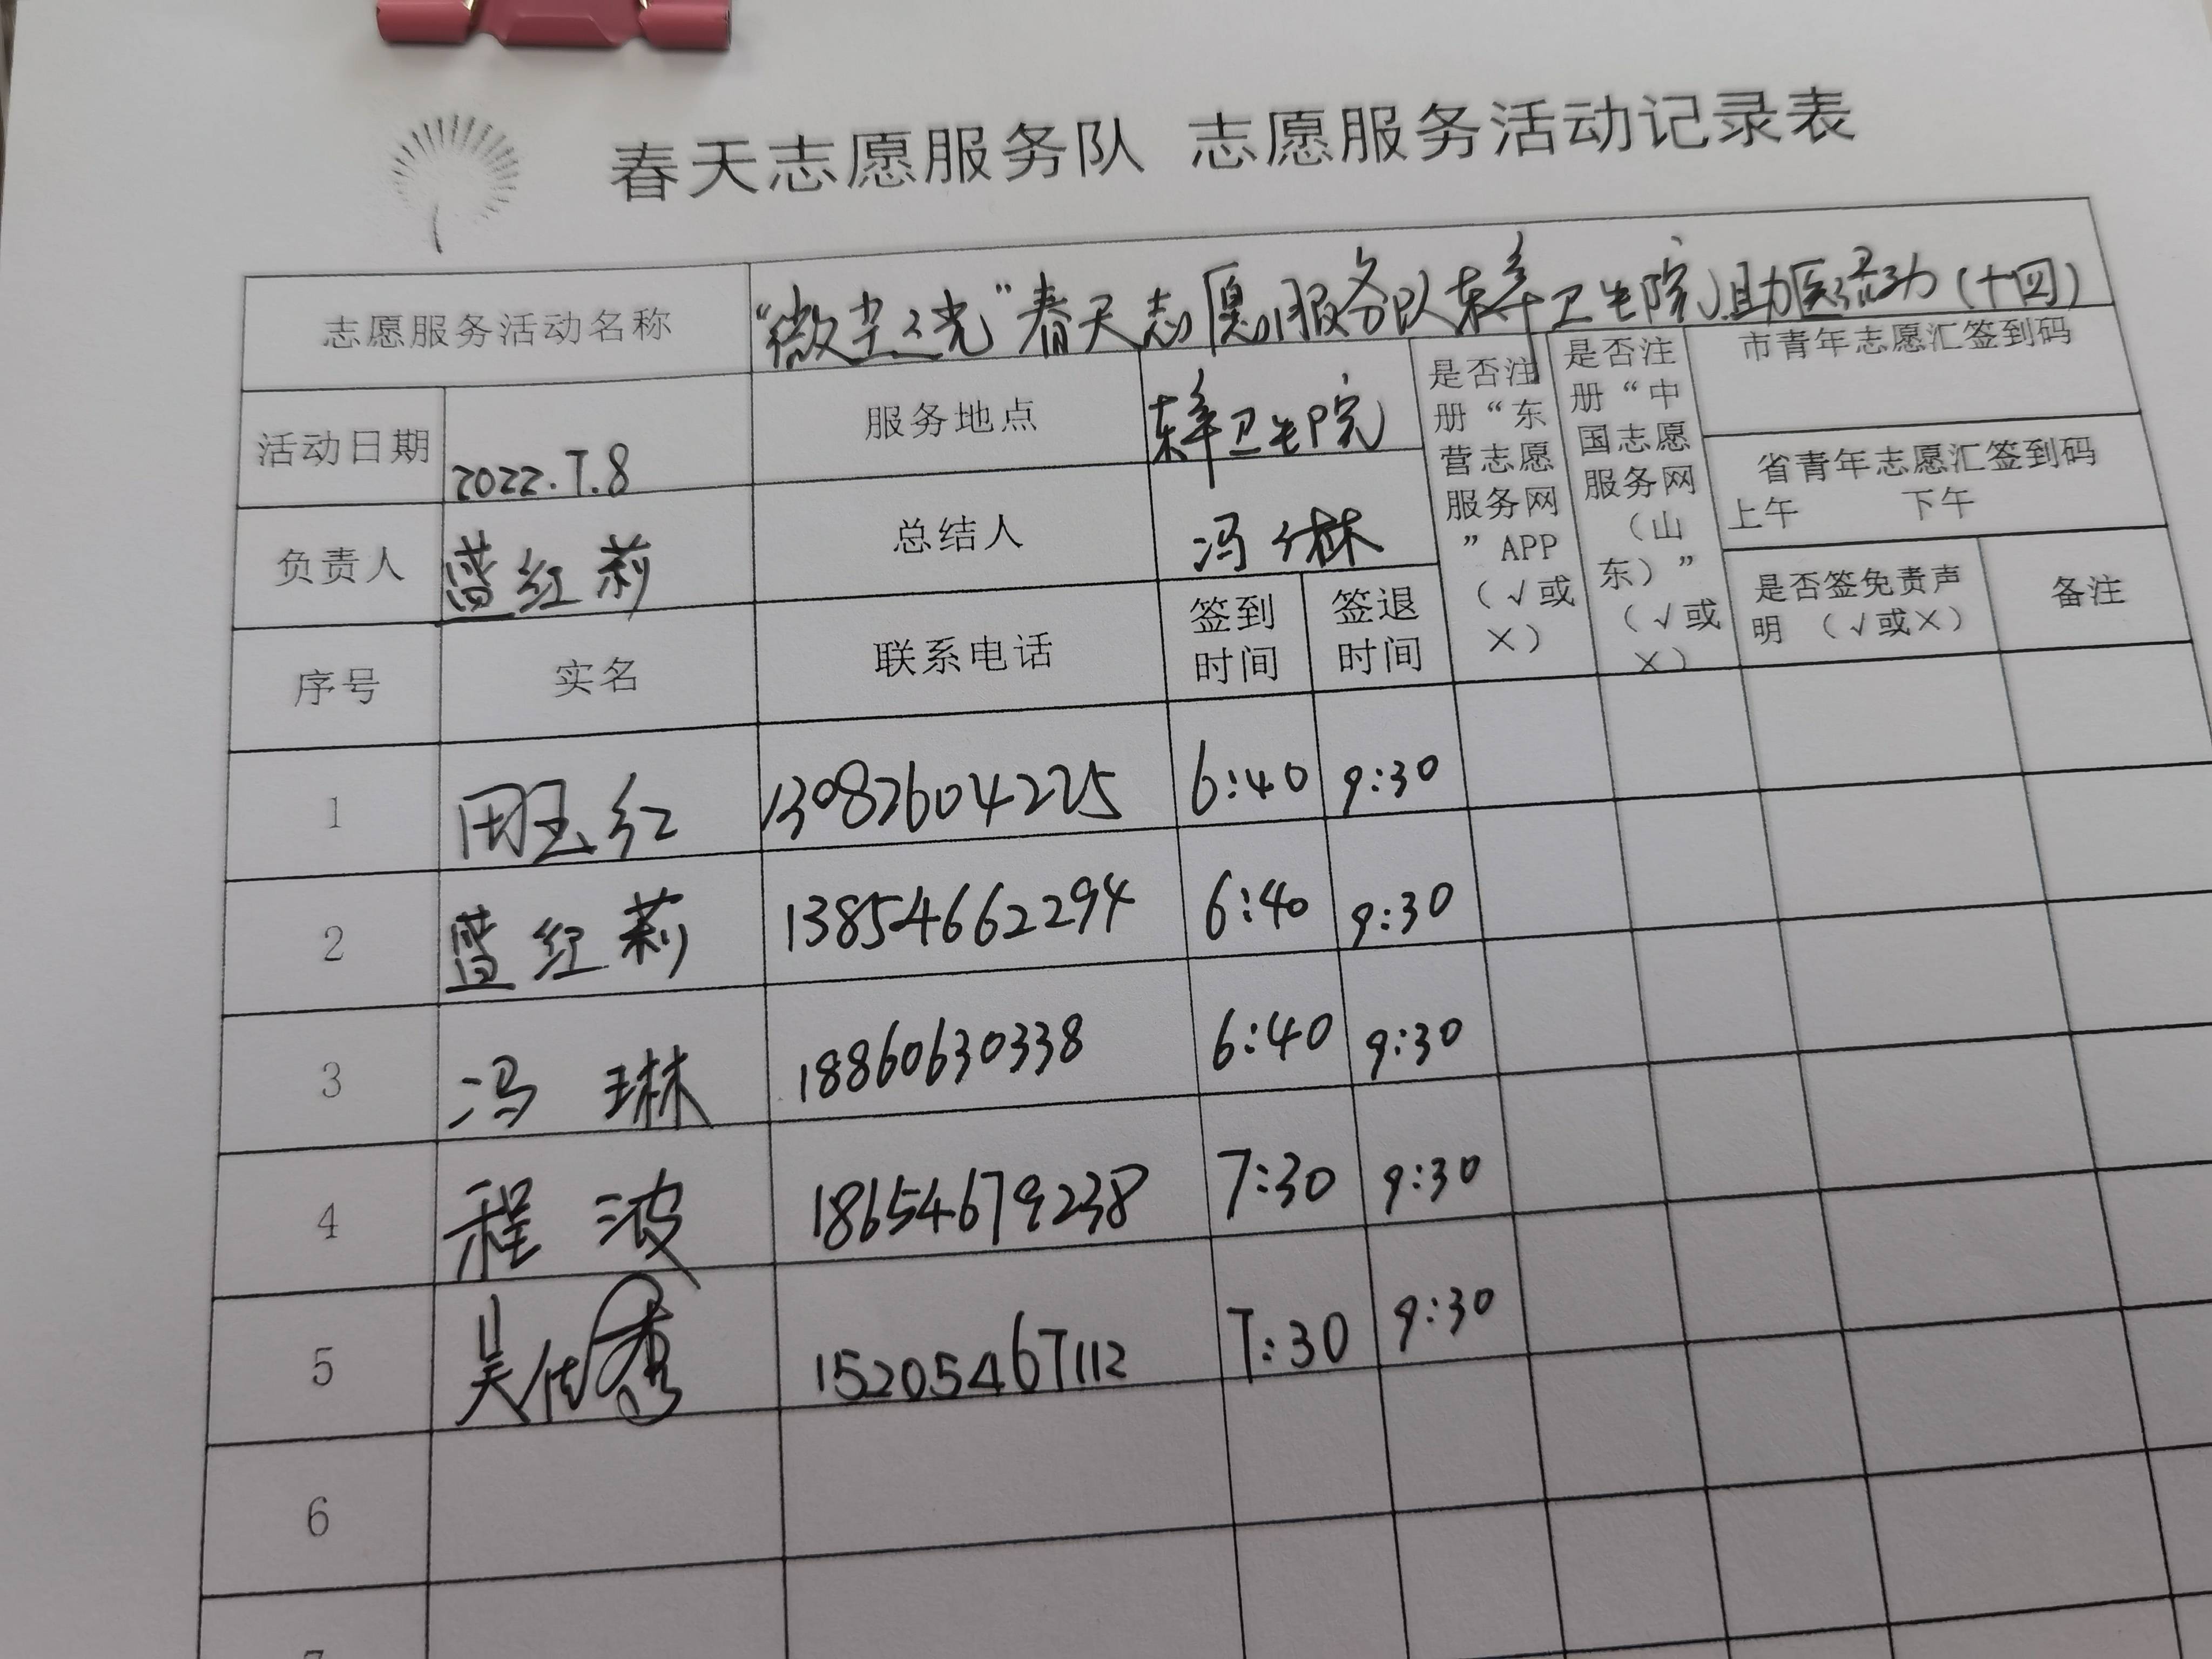 春天志愿服务队 志愿服务活动记录表
志愿服务活动名称 “微尘之光”春天志愿服务队东辛卫生院助医活动(十四)
活动日期 2022.7.8 服务地点 东辛卫生院
是否注册“东营志愿服务网”APP（√或×）
是否注册“中国志愿服务网（山东）”（√或×）
市青年志愿汇签到码
省青年志愿汇签到码
上午 下午
负责人 蓝红莉 总结人 冯琳
是否签免责声明 （√或×） 备注
序号 实名 联系电话 签到时间 签退时间
1 田玉红 13082604225 6:40 9:30
2 蓝红莉 13854662294 6:40 9:30
3 冯 琳 18860630338 6:40 9:30
4 程 波 18654679238 7:30 9:30
5 吴 秀 15205467112 7:30 9:30
6
7